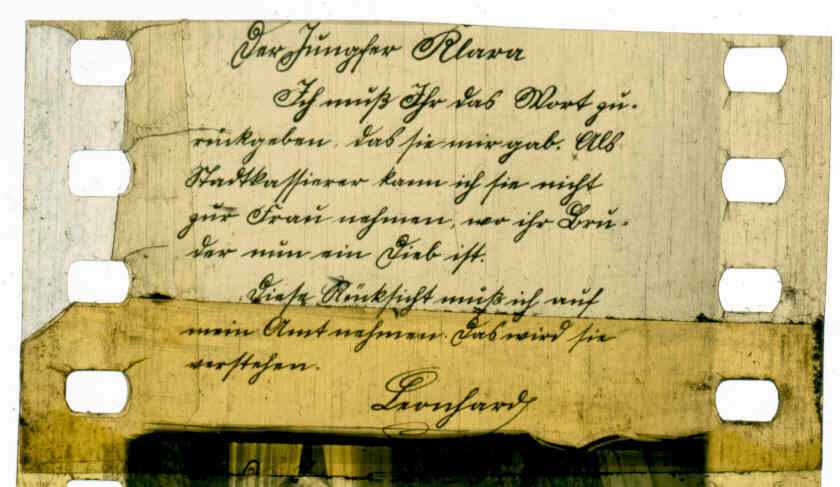 Der Jungfer Klara
Ich muß Ihr das Wort zu-
rückgeben, das sie mir gab. Als
Stadtkassierer kann ich sie nicht
zur Frau nehmen, wo ihr Bru-
der nun ein Dieb ist.
Diese Rücksicht muß ich auf
mein Amt nehmen. Das wird sie
verstehen.
Leonhard